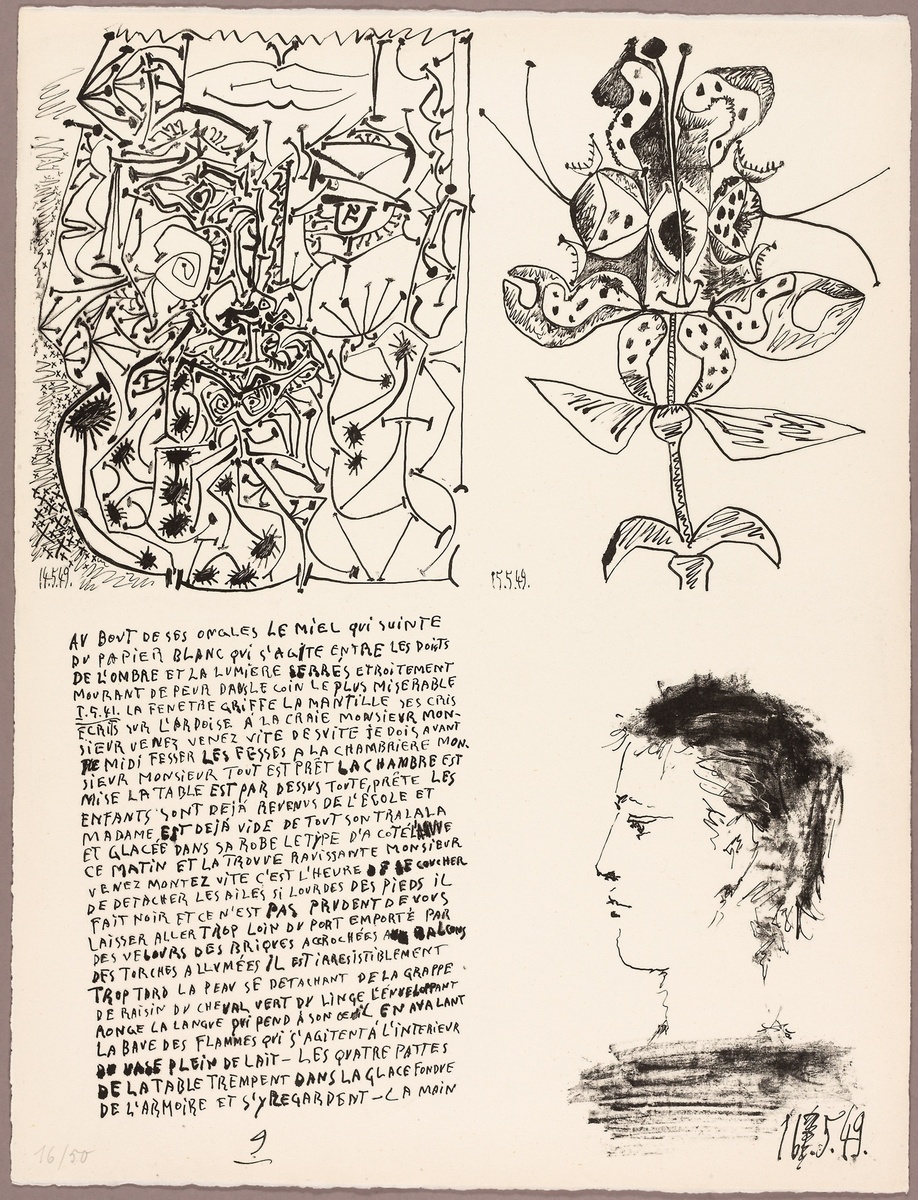 14.5.49.
15.5.49.
AU BOUT DE SES ONGLES LE MIEL QUI SUINTE
DU PAPIER BLANC QUI S'AGITE ENTRE LES DOITS
DE L'OMBRE ET LA LUMIERE SERRÉS ETROITEMENT
MOURANT DE PEUR DANS LE COIN LE PLUS MISERABLE
1.5.41. LA FENETRE GRIFFE LA MANTILLE SES CRIS
ÉCRITS SUR L'ARDOISE A LA CRAIE MONSIEUR MON-
SIEUR VENEZ VENEZ VITE DESVITE JE DOIS AVANT
MIDI FESSER LES FESSES A LA CHAMBRIÈRE MON
SIEUR MONSIEUR TOUT EST PRÊT LA CHAMBRE EST
MISE LA TABLE EST PAR DESSUS TOUTE PRÊTE LES
ENFANTS SONT DEJÀ REVENUS DE L'ÉCOLE ET
MADAME EST DEJÀ VIDE DE TOUT SON TRALALA
ET GLACÉE DANS SA ROBE LE TYPE D'A COTÉ
CE MATIN ET LA TROUVE RAVISSANTE MONSIEUR
VENEZ MONTEZ VITE C'EST L'HEURE DE SE COUCHER
DE DETACHER LES AILES SI LOURDES DES PIEDS IL
FAIT NOIR ET CE N'EST PAS PRUDENT DE VOUS
LAISSER ALLER TROP LOIN DU PORT EMPORTÉ PAR
DES VELOURS DES BRIQUES ACCROCHÉES AUX BALCONS
DES TORCHES ALLUMÉES IL EST IRRESISTIBLEMENT
TROP TARD LA PEAU SE DETACHANT DE LA GRAPPE
DE RAISIN DU CHEVAL VERT DU LINGE L'ENVELOPPANT
RONGE LA LANGUE QUI PEND À SON OEIL EN AVALANT
LA BAVE DES FLAMMES QUI S'AGITENT À L'INTERIEUR
DU VASE PLEIN DE LAIT - LES QUATRE PATTES
DE LA TABLE TREMPENT DANS LA GLACE FONDUE
DE L'ARMOIRE ET S'Y REGARDENT - LA MAIN
9
16.5.49.
16/50